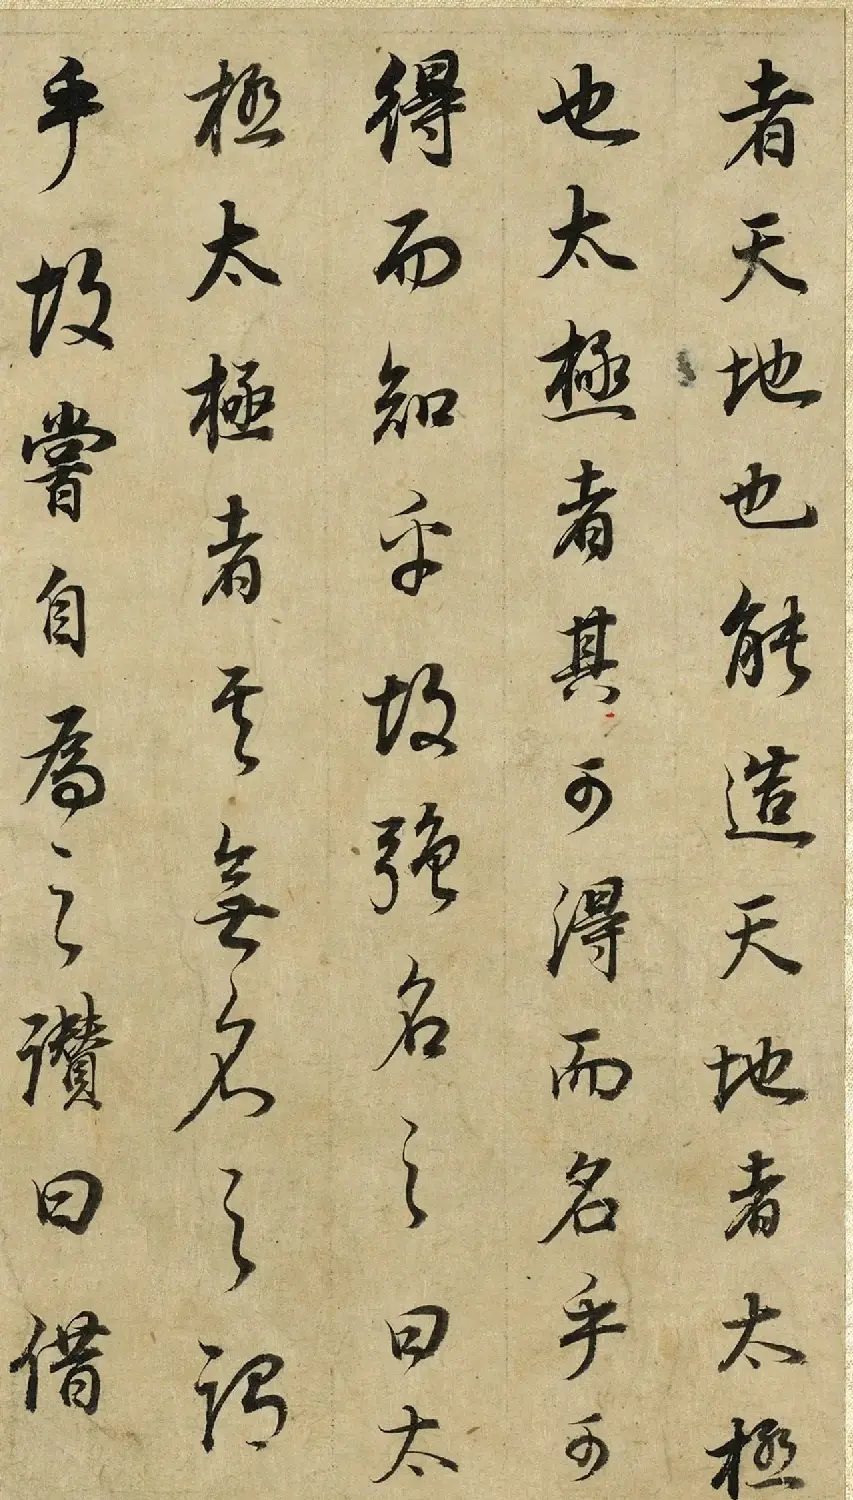 者天地也能造天地者太極
也太極者其可得而名乎可
得而知乎故強名之曰太
極太極者其無名之謂
乎故嘗自為之讚曰借